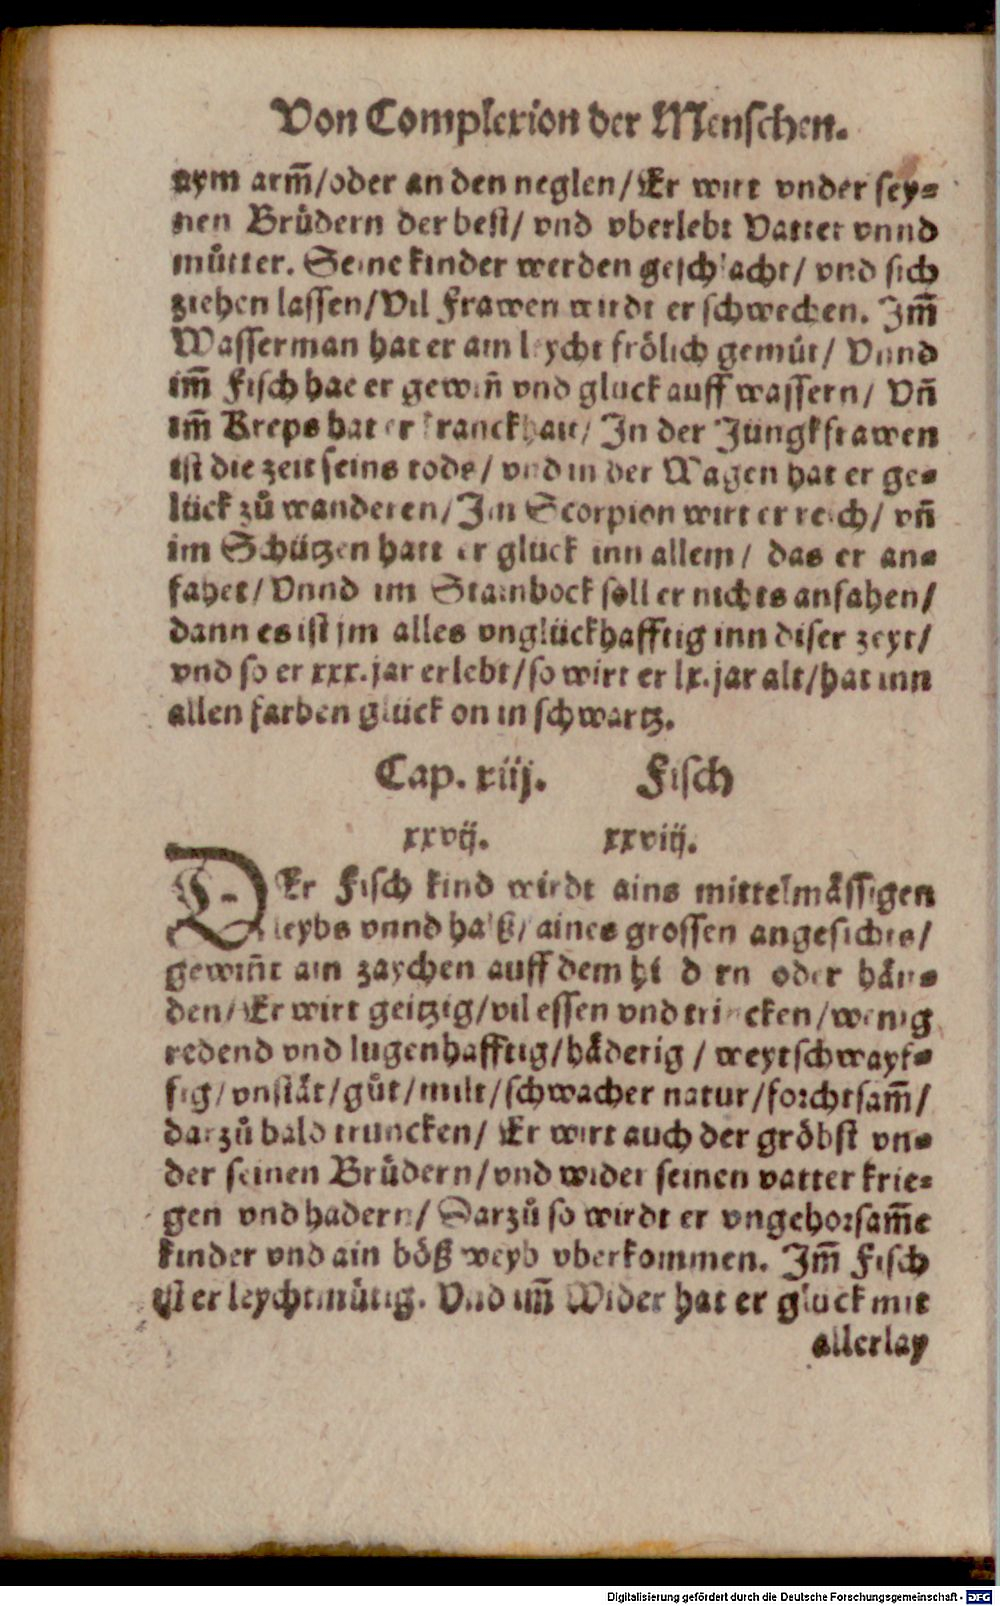 Von Complexion der Menschen.
aym arm̃/oder an den neglen/Er wirt vnder sey⸗
nen Brůdern der best/ vnd vberlebt Vatter vnnd
můtter. Seine kinder werden geschlacht/ vnd sich
ziehen lassen/Vil Frawen wirdt er schwechen. Jm̃
Wasserman hat er ain leycht frölich gemüt/ Vnnd
im̃ Fisch hat er gewiñ vnd gluck auff wassern/ Vñ
im̃ Kreps hat er kranckhait/ Jn der Jungkfrawen
ist die zeit seins tods/ vnd in der Wagen hat er ge⸗
lück zů wanderen/Jm Scorpion wirt er reich/ vñ
im Schützen hatt er glück inn allem/ das er an⸗
fahet/Vnnd im Stainbock soll er nichts anfahen/
dann es ist jm alles vnglückhafftig inn diser zeyt/
vnd so er xxx.jar erlebt/so wirt er lx.jar alt/hat inn
allen farben glück on in schwartz.
Cap. xiij. Fisch
xxvij. xxviij.
DEr Fisch kind wirdt ains mittelmässigen
leybs vnnd halß/aines grossen angesichts/
gewiñt ain zaychen auff dem oder hän⸗
den/Er wirt geitzig/vil essen vnd trincken/wenig
redend vnd lugenhafftig/häderig / weytschwayf⸗
fig/vnstät/gůt/milt/schwacher natur/forchtsam̃/
darzů bald truncken/ Er wirt auch der gröbst vn⸗
der seinen Brüdern/vnd wider seinen vatter krie⸗
gen vnd hadern/ Darzů so wirdt er vngehorsam̃e
kinder vnd ain böß weyb vberkommen. Jm̃ Fisch
ist er leychtmütig. Vnd im̃ Wider hat er gluck mit
allerlay
Digitalisierung gefördert durch die Deutsche Forschungsgemeinschaft - DFG